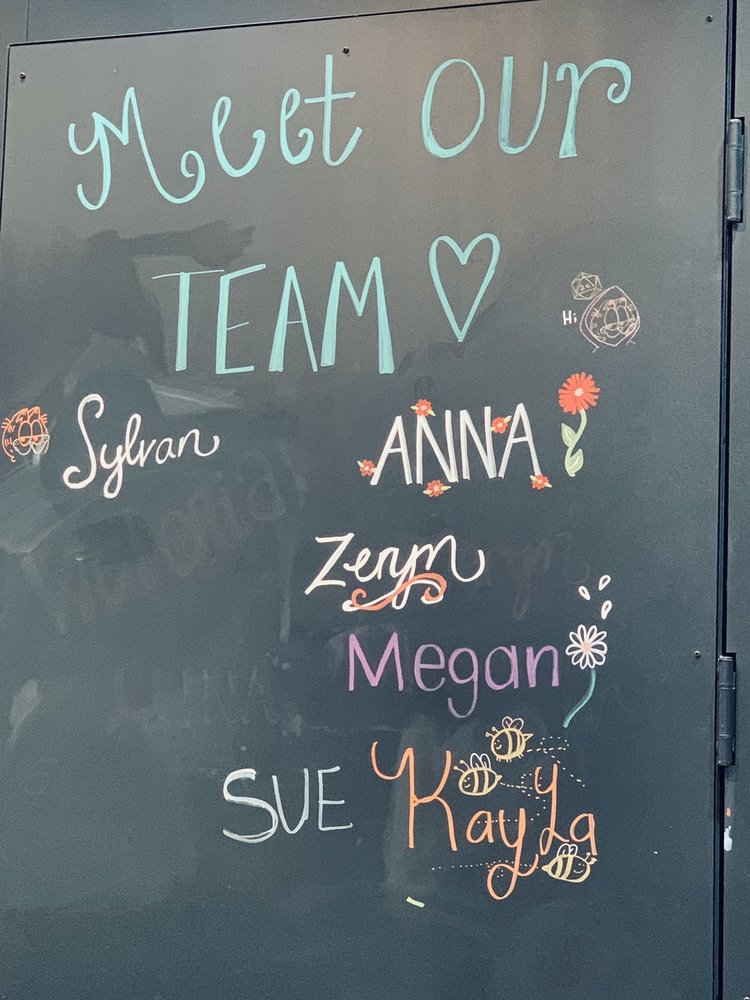 Meet Our
TEAM
Hi
20
Sylvan
ANNA
Zerym
Megan
SUE
Kayla